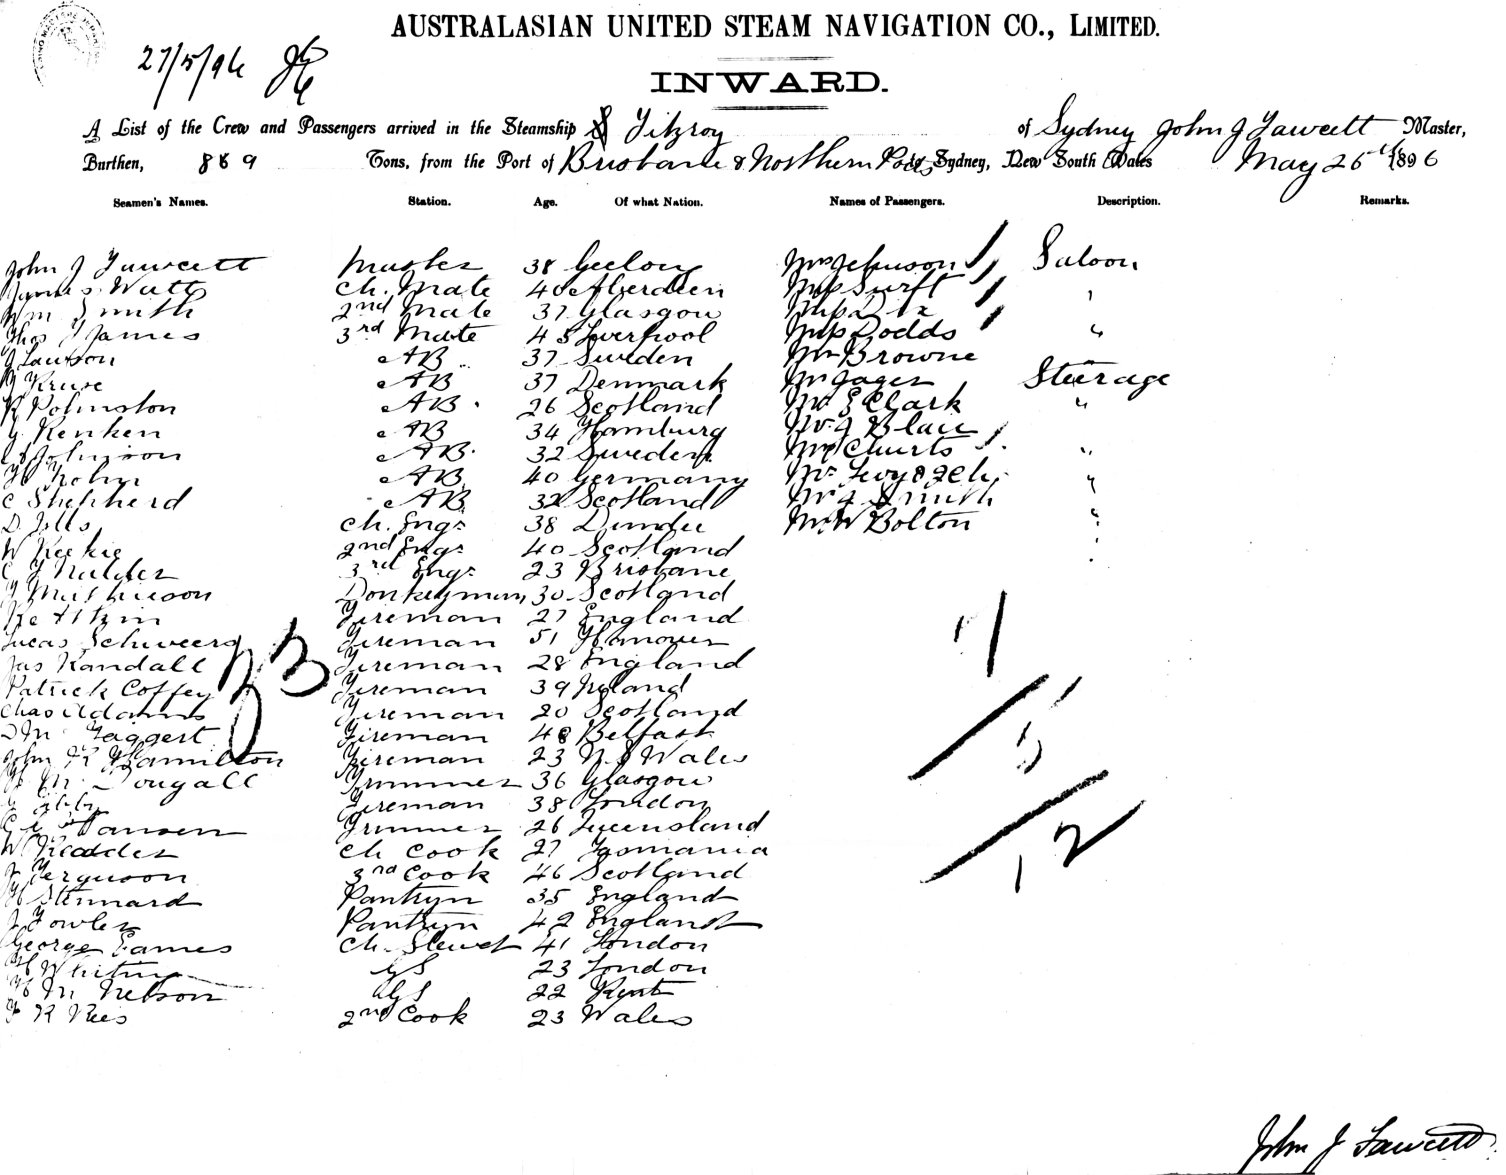 27/5/96
AUSTRALASIAN UNITED STEAM NAVIGATION CO., LIMITED.
INWARD.
A List of the Crew and Passengers arrived in the Steamship Fitzroy of Sydney John J Fawcett Master,
Burthen, 889 Tons, from the Port of Brisbane & Northern Ports Sydney, New South Wales May 26th 1896
Seamen's Names. Station. Age. Of what Nation. Names of Passengers. Description. Remarks.
John J Fawcett Master 38 Geelong Mrs Johnson Saloon
James Watt Ch. Mate 40 Aberdeen Miss Swift "
Wm Smith 2nd Mate 37 Glasgow Miss Dix
Thos James 3rd Mate 45 Liverpool Miss Dodds "
J Lawson AB 37 Sweden Mr Browne
Kruse AB 37 Denmark Mr Jager Steerage
R Johnston AB 26 Scotland Mr E Clark "
Renken AB 34 Hamburg Mr J Blair
Johnson AB 32 Sweden "
Kohn AB 40 Germany Mr "
C Shepherd AB 32 Scotland Mr J Smith
D Ch. Engr 38 Dundee Mr W Bolton "
W Reekie 2nd Engr 40 Scotland
3rd Engr 23 Brisbane
Donkeyman 30 Scotland
Fireman 27 England
Lucas Schweers Fireman 51 Hanover
Jas Randall Fireman 28 England
Patrick Coffey Fireman 39 Ireland
Chas Adams Fireman 20 Scotland
D Mc Taggert Fireman 48 Belfast
John R Hamilton Fireman 23 N S Wales
Mc Dougall Trimmer 36 Glasgow
Fireman 38 London
Hansen Trimmer 26 Queensland
W Ch Cook 27 Tasmania
J Ferguson 3rd Cook 46 Scotland
H Stennard Pantryn 35 England
J Fowler Pantryn 42 England
George Eames Ch. Stewt 41 London
H Whiting GS 23 London
H M Nelson GS 22 Kent
F R Rees 2nd Cook 23 Wales
33
12
John J Fawcett